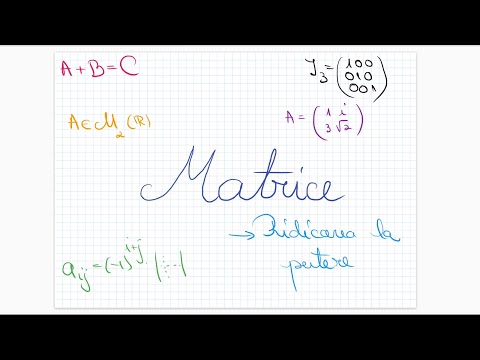 A + B = C
I₃ = (1 0 0
0 1 0
0 0 1)
A ∈ M₂ (ℝ)
A = (1 i
3 √2)
Matrice
→ Ridicarea la
putere
aᵢⱼ = (-1)ⁱ⁺ʲ · |···|